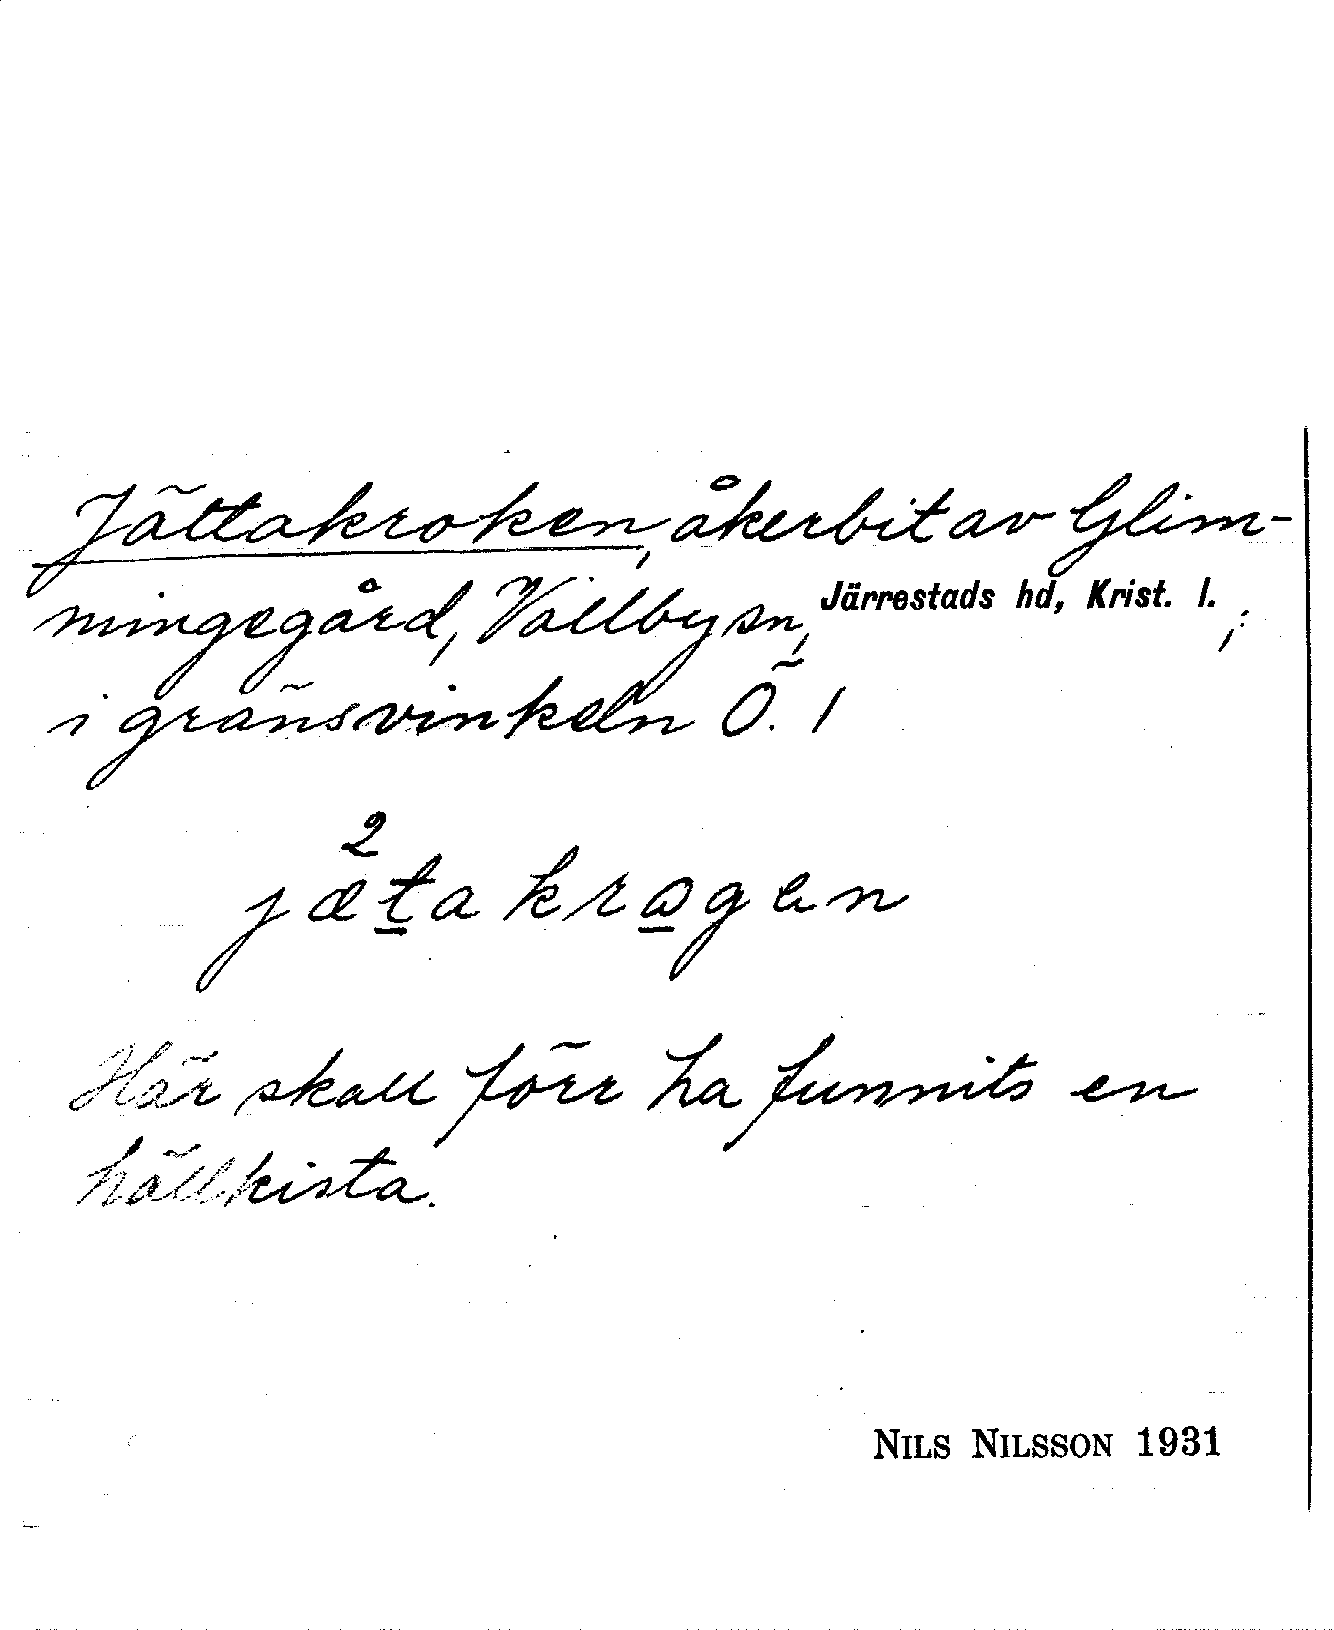 Jättakroken, åkerbit av Glim-
mingegård, Vallby sn, Järrestads hd, Krist. l.;
i gränsvinkeln Ö. 1
2
jætakrogen
Här skall förr ha funnits en
hällkista.
NILS NILSSON 1931